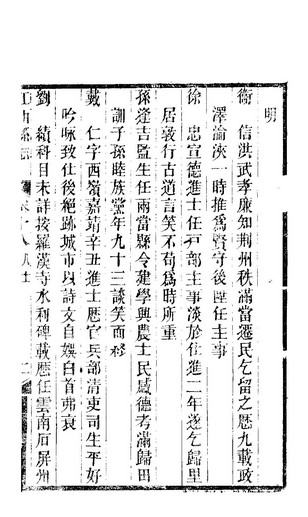 明
衞　信洪武孝廉知荆州秩滿當遷民乞畱之歷九載政
澤淪浹一時推爲賢守後陞任主事
徐　忠宣德進士任戸部主事淡於仕進二年遂乞歸里
居敦行古道言笑不苟爲時所重
孫逢吉監生任兩當縣令建學興農士民感德考滿歸田
訓子孫睦族黨年九十三談笑而終
戴　仁字西嶺嘉靖辛丑進士歷官兵部淸吏司生平好
吟咏致仕後絶跡城市以詩文自娛白首弗衰
劉　績科目未詳按羅漢寺水利碑載歷任雲南石屏州